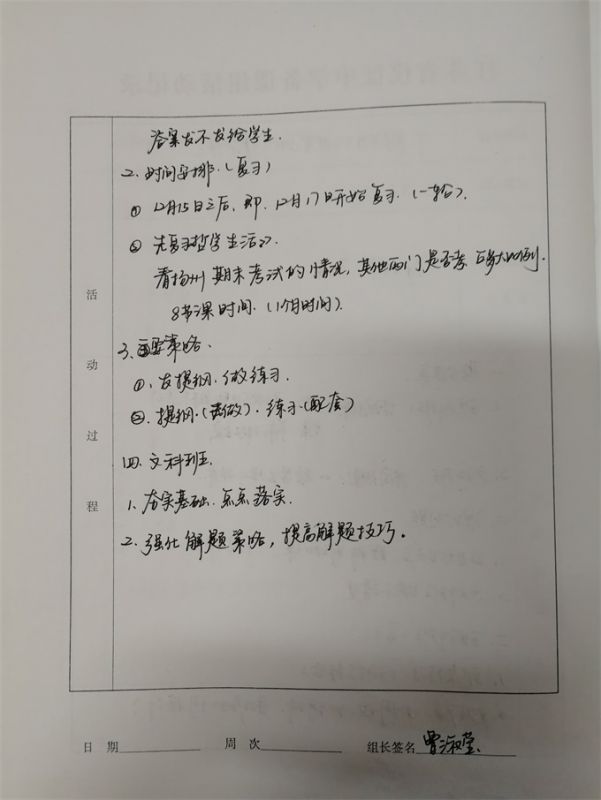 答案发不发给学生.
2. 时间安排.(复习)
① 12月15日之后, 即. 12月17日开始复习. (一轮).
② 先复习哲学生活.
看扬州期末考试的情况, 其他两门是否考 多大比例.
8节课时间. (1个月时间).
3. 策略.
①. 发提纲. 做练习.
②. 提纲.(做). 练习(配套)
四. 文科班.
1. 夯实基础. 点点落实.
2. 强化解题策略, 提高解题技巧.
活
动
过
程
日 期 周 次 组长签名 曾淑莹